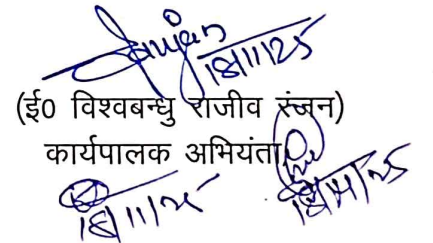 18/11/25
(ई0 विश्वबन्धु राजीव रंजन)
कार्यपालक अभियंता
18/11/25
18/11/25